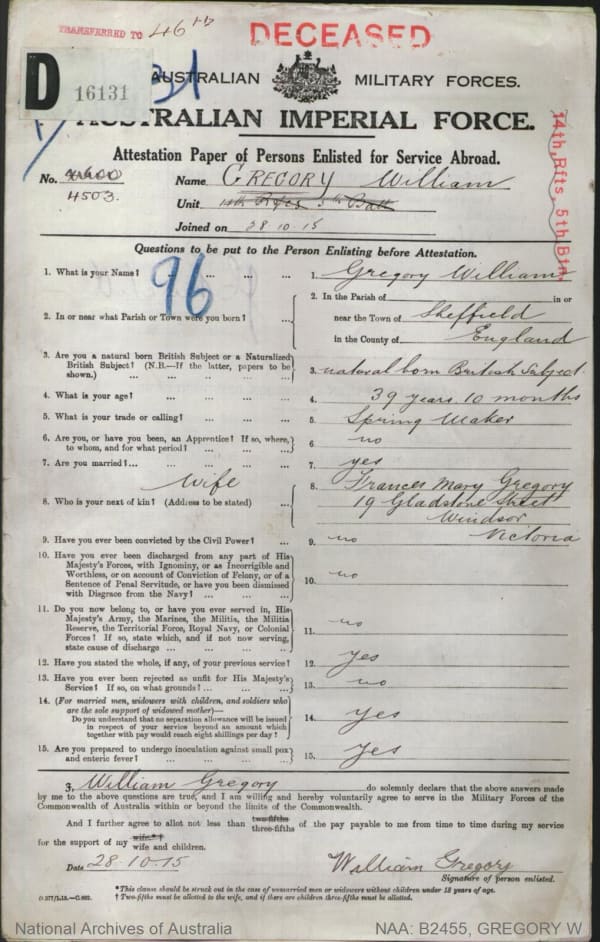 TRANSFERRED TO 46TH
DECEASED
D 16131
AUSTRALIAN MILITARY FORCES.
AUSTRALIAN IMPERIAL FORCE.
14th. Rfts, 5th. Btn.
Attestation Paper of Persons Enlisted for Service Abroad.
No. 4503. Name GREGORY William
Unit 14th Rfcs 5th Batt
Joined on 28 10 15
Questions to be put to the Person Enlisting before Attestation.
96
1. What is your Name? ... ... ... ... 1. Gregory William
2. In or near what Parish or Town were you born? ... 2. In the Parish of in or
near the Town of Sheffield
in the County of England
3. Are you a natural born British Subject or a Naturalized
British Subject? (N.B.—If the latter, papers to be
shown.) ... ... ... ... 3. natural born British Subject.
4. What is your age? ... ... ... ... 4. 39 years 10 months
5. What is your trade or calling? ... ... ... 5. Spring Maker
6. Are you, or have you been, an Apprentice? If so, where,
to whom, and for what period? ... ... ... 6. no
7. Are you married?... ... ... ... 7. yes
Wife
8. Who is your next of kin? (Address to be stated) ... 8. Frances Mary Gregory
19 Gladstone Street
Windsor
Victoria
9. Have you ever been convicted by the Civil Power? ... 9. no
10. Have you ever been discharged from any part of His
Majesty's Forces, with Ignominy, or as Incorrigible and
Worthless, or on account of Conviction of Felony, or of a
Sentence of Penal Servitude, or have you been dismissed
with Disgrace from the Navy? ... ... ... 10. no
11. Do you now belong to, or have you ever served in, His
Majesty's Army, the Marines, the Militia, the Militia
Reserve, the Territorial Force, Royal Navy, or Colonial
Forces? If so, state which, and if not now serving,
state cause of discharge ... ... ... 11. no
12. Have you stated the whole, if any, of your previous service? 12. yes
13. Have you ever been rejected as unfit for His Majesty's
Service? If so, on what grounds? ... ... ... 13. no
14. (For married men, widowers with children, and soldiers who
are the sole support of widowed mother)—
Do you understand that no separation allowance will be issued
in respect of your service beyond an amount which
together with pay would reach eight shillings per day? 14. yes
15. Are you prepared to undergo inoculation against small pox
and enteric fever? ... ... ... ... 15. yes
I, William Gregory do solemnly declare that the above answers made
by me to the above questions are true, and I am willing and hereby voluntarily agree to serve in the Military Forces of the
Commonwealth of Australia within or beyond the limits of the Commonwealth.
And I further agree to allot not less than two-fifths three-fifths of the pay payable to me from time to time during my service
for the support of my wife*† wife and children.
Date 28.10.15 William Gregory
Signature of person enlisted.
*This clause should be struck out in the case of unmarried men or widowers without children under 18 years of age.
† Two-fifths must be allotted to the wife, and if there are children three-fifths must be allotted.
National Archives of Australia NAA: B2455, GREGORY W